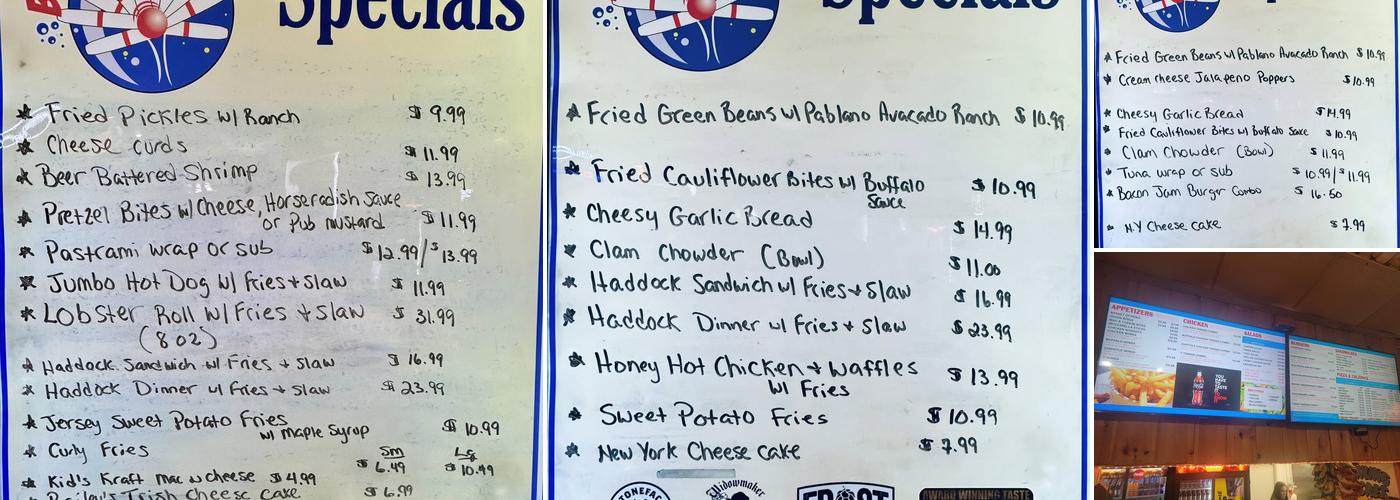 Specials
* Fried Pickles w/ Ranch $ 9.99
* Cheese curds $ 11.99
* Beer Battered Shrimp $ 13.99
* Pretzel Bites w/ Cheese, Horseradish Sauce
or Pub mustard $ 11.99
* Pastrami wrap or sub $ 12.99/$ 13.99
* Jumbo Hot Dog w/ Fries + Slaw $ 11.99
* Lobster Roll w/ Fries + Slaw $ 31.99
(8 oz)
* Haddock Sandwich w/ Fries + Slaw $ 16.99
* Haddock Dinner w/ Fries + Slaw $ 23.99
* Jersey Sweet Potato Fries
w/ Maple Syrup $ 10.99
* Curly Fries Sm Lg
$ 6.49 $ 10.49
* Kid's Kraft mac n cheese $ 4.99
Irish Cheese Cake $ 6.99
Specials
* Fried Green Beans w/ Pablano Avacado Ranch $ 10.99
* Fried Cauliflower Bites w/ Buffalo
Sauce $ 10.99
* Cheesy Garlic Bread $ 14.99
* Clam Chowder (Bowl) $ 11.00
* Haddock Sandwich w/ Fries + Slaw $ 16.99
* Haddock Dinner w/ Fries + Slaw $ 23.99
* Honey Hot Chicken + Waffles
w/ Fries $ 13.99
* Sweet Potato Fries $ 10.99
* New York Cheese Cake $ 7.99
Widowmaker
FROST
AWARD WINNING TASTE
* Fried Green Beans w/ Pablano Avacado Ranch $ 10.99
* Cream cheese Jalapeno Poppers $ 10.99
* Cheesy Garlic Bread $ 14.99
* Fried Cauliflower Bites w/ Buffalo Sauce $ 10.99
* Clam Chowder (Bowl) $ 11.99
* Tuna wrap or sub $ 10.99/$ 11.99
* Bacon Jam Burger Combo $ 16.50
* NY Cheese cake $ 7.99
APPETIZERS
CHICKEN
SALADS
BURGERS
SANDWICHES